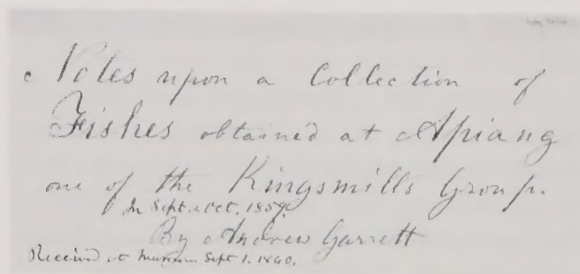 Notes upon a Collection of
Fishes obtained at Apiang
one of the Kingsmills Group.
In Sept. & Oct. 1859.
By Andrew Garrett
Received at Museum Sept 1. 1860.